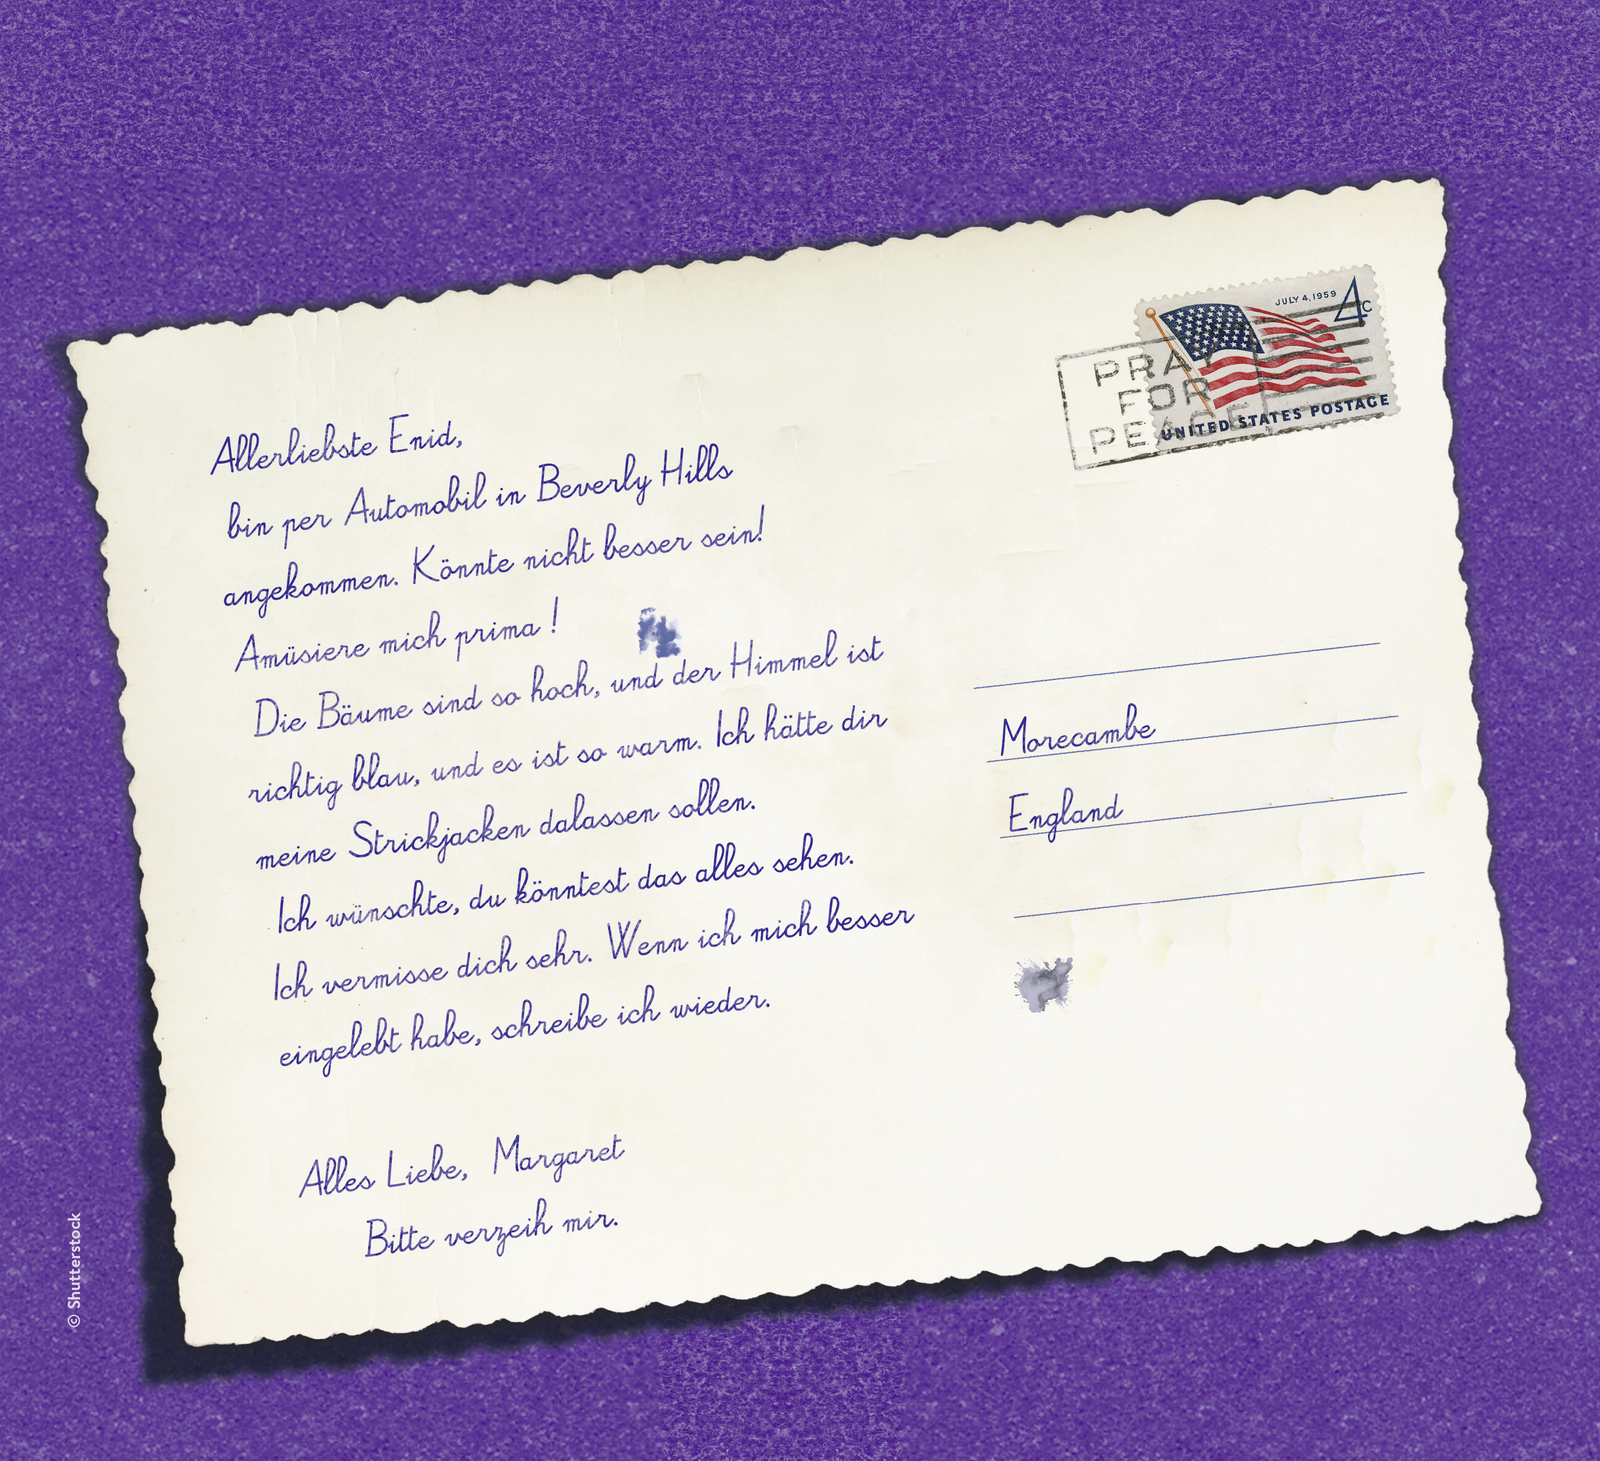 JULY 4, 1959 4c
PRAY
FOR
PEACE
UNITED STATES POSTAGE
Allerliebste Enid,
bin per Automobil in Beverly Hills
angekommen. Könnte nicht besser sein!
Amüsiere mich prima !
Die Bäume sind so hoch, und der Himmel ist
richtig blau, und es ist so warm. Ich hätte dir
meine Strickjacken dalassen sollen.
Ich wünschte, du könntest das alles sehen.
Ich vermisse dich sehr. Wenn ich mich besser
eingelebt habe, schreibe ich wieder.
Alles Liebe, Margaret
Bitte verzeih mir.
Morecambe
England
© Shutterstock